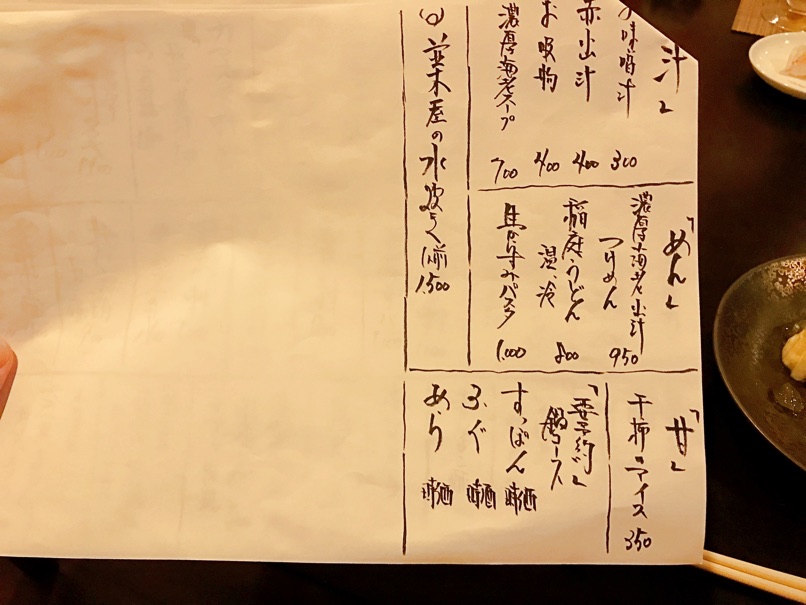 汁」
味噌汁 300
赤出汁 400
お吸物 400
濃厚海老スープ 700
「めん」
濃厚海老出汁
つけめん 950
稲庭うどん
温、冷 800
生からすみパスタ 1,000
「甘」
干柿のアイス 350
「要予約」
鍋コース
すっぽん 時価
ふぐ 時価
あら 時価
並木屋の水炊き 1人前 1,500